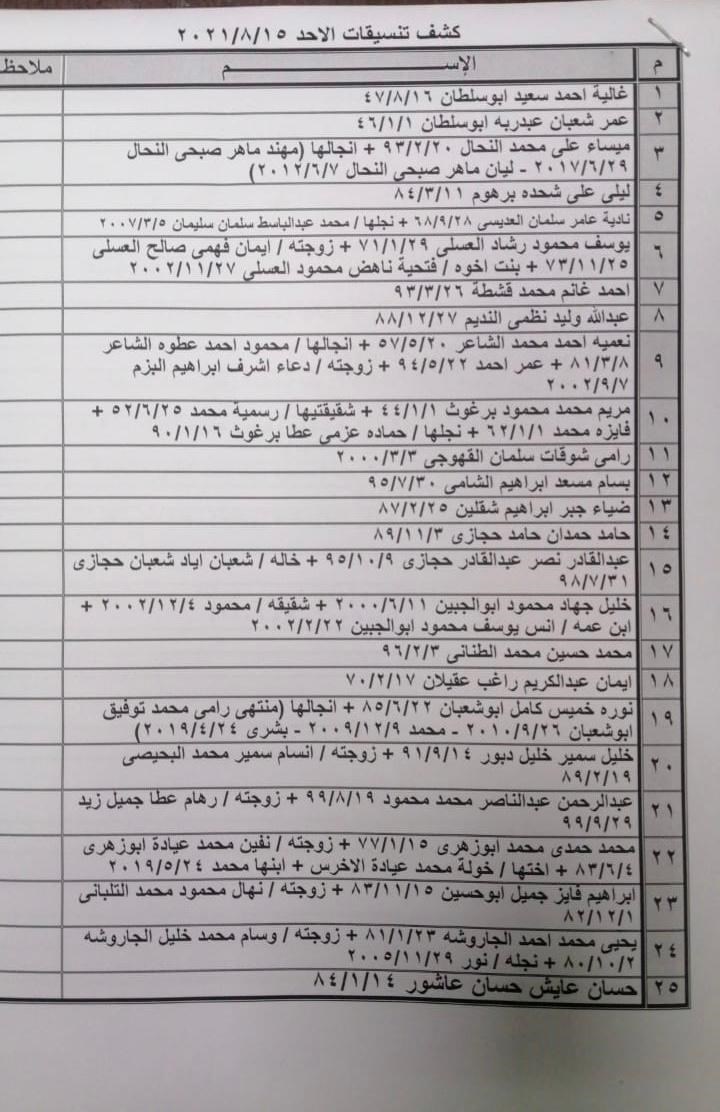 كشف تنسيقات الاحد ٢٠٢١/٨/١٥
م الإســـــــــــم ملاحظ
١ غالية احمد سعيد ابوسلطان ٤٧/٨/١٦
٢ عمر شعبان عبدربه ابوسلطان ٤٦/١/١
٣ ميساء على محمد النحال ٩٣/٢/٢٠ + انجالها (مهند ماهر صبحى النحال
٢٠١٧/٦/٢٩ - ليان ماهر صبحى النحال ٢٠١٢/٦/٧)
٤ ليلى على شحده برهوم ٨٤/٣/١١
٥ نادية عامر سلمان العديسى ٦٨/٩/٢٨ + نجلها / محمد عبدالباسط سلمان سليمان ٢٠٠٧/٣/٥
٦ يوسف محمود رشاد العسلى ٧١/١/٢٩ + زوجته / ايمان فهمى صالح العسلى
٧٣/١١/٢٥ + بنت اخوه / فتحية ناهض محمود العسلى ٢٠٠٢/١١/٢٧
٧ احمد غانم محمد قشطة ٩٣/٣/٢٦
٨ عبدالله وليد نظمى النديم ٨٨/١٢/٢٧
٩ نعميه احمد محمد الشاعر ٥٧/٥/٢٠ + انجالها / محمود احمد عطوه الشاعر
٨١/٣/٨ + عمر احمد ٩٤/٥/٢٢ + زوجته / دعاء اشرف ابراهيم البزم
٢٠٠٢/٩/٧
١٠ مريم محمد محمود برغوث ٤٤/١/١ + شقيقتيها / رسمية محمد ٥٢/٦/٢٥ +
فايزه محمد ٦٢/١/١ + نجلها / حماده عزمى عطا برغوث ٩٠/١/١٦
١١ رامى شوقات سلمان القهوجى ٢٠٠٠/٣/٣
١٢ بسام مسعد ابراهيم الشامى ٩٥/٧/٣٠
١٣ ضياء جبر ابراهيم شقلين ٨٧/٢/٢٥
١٤ حامد حمدان حامد حجازى ٨٩/١١/٣
١٥ عبدالقادر نصر عبدالقادر حجازى ٩٥/١٠/٩ + خاله / شعبان اياد شعبان حجازى
٩٨/٧/٣١
١٦ خليل جهاد محمود ابوالجبين ٢٠٠٠/٦/١١ + شقيقه / محمود ٢٠٠٢/١٢/٤ +
ابن عمه / انس يوسف محمود ابوالجبين ٢٠٠٢/٢/٢٢
١٧ محمد حسين محمد الطنانى ٩٦/٢/٣
١٨ ايمان عبدالكريم راغب عقيلان ٧٠/٢/١٧
١٩ نوره خميس كامل ابوشعبان ٨٥/٦/٢٢ + انجالها (منتهى رامى محمد توفيق
ابوشعبان ٢٠١٠/٩/٢٦ - محمد ٢٠٠٩/١٢/٩ - بشرى ٢٠١٩/٤/٢٤)
٢٠ خليل سمير خليل دبور ٩١/٩/١٤ + زوجته / انسام سمير محمد البحيصى
٨٩/٢/١٩
٢١ عبدالرحمن عبدالناصر محمد محمود ٩٩/٨/١٩ + زوجته / رهام عطا جميل زيد
٩٩/٩/٢٩
٢٢ محمد حمدى محمد ابوزهرى ٧٧/١/١٥ + زوجته / نفين محمد عيادة ابوزهرى
٨٣/٦/٤ + اختها / خولة محمد عيادة الاخرس + ابنها محمد ٢٠١٩/٥/٢٤
٢٣ ابراهيم فايز جميل ابوحسين ٨٣/١١/١٥ + زوجته / نهال محمود محمد التلبانى
٨٢/١٢/١
٢٤ يحيى محمد احمد الجاروشه ٨١/١/٢٣ + زوجته / وسام محمد خليل الجاروشه
٨٠/١٠/٢ + نجله / نور ٢٠٠٥/١١/٢٩
٢٥ حسان عايش حسان عاشور ٨٤/١/١٤